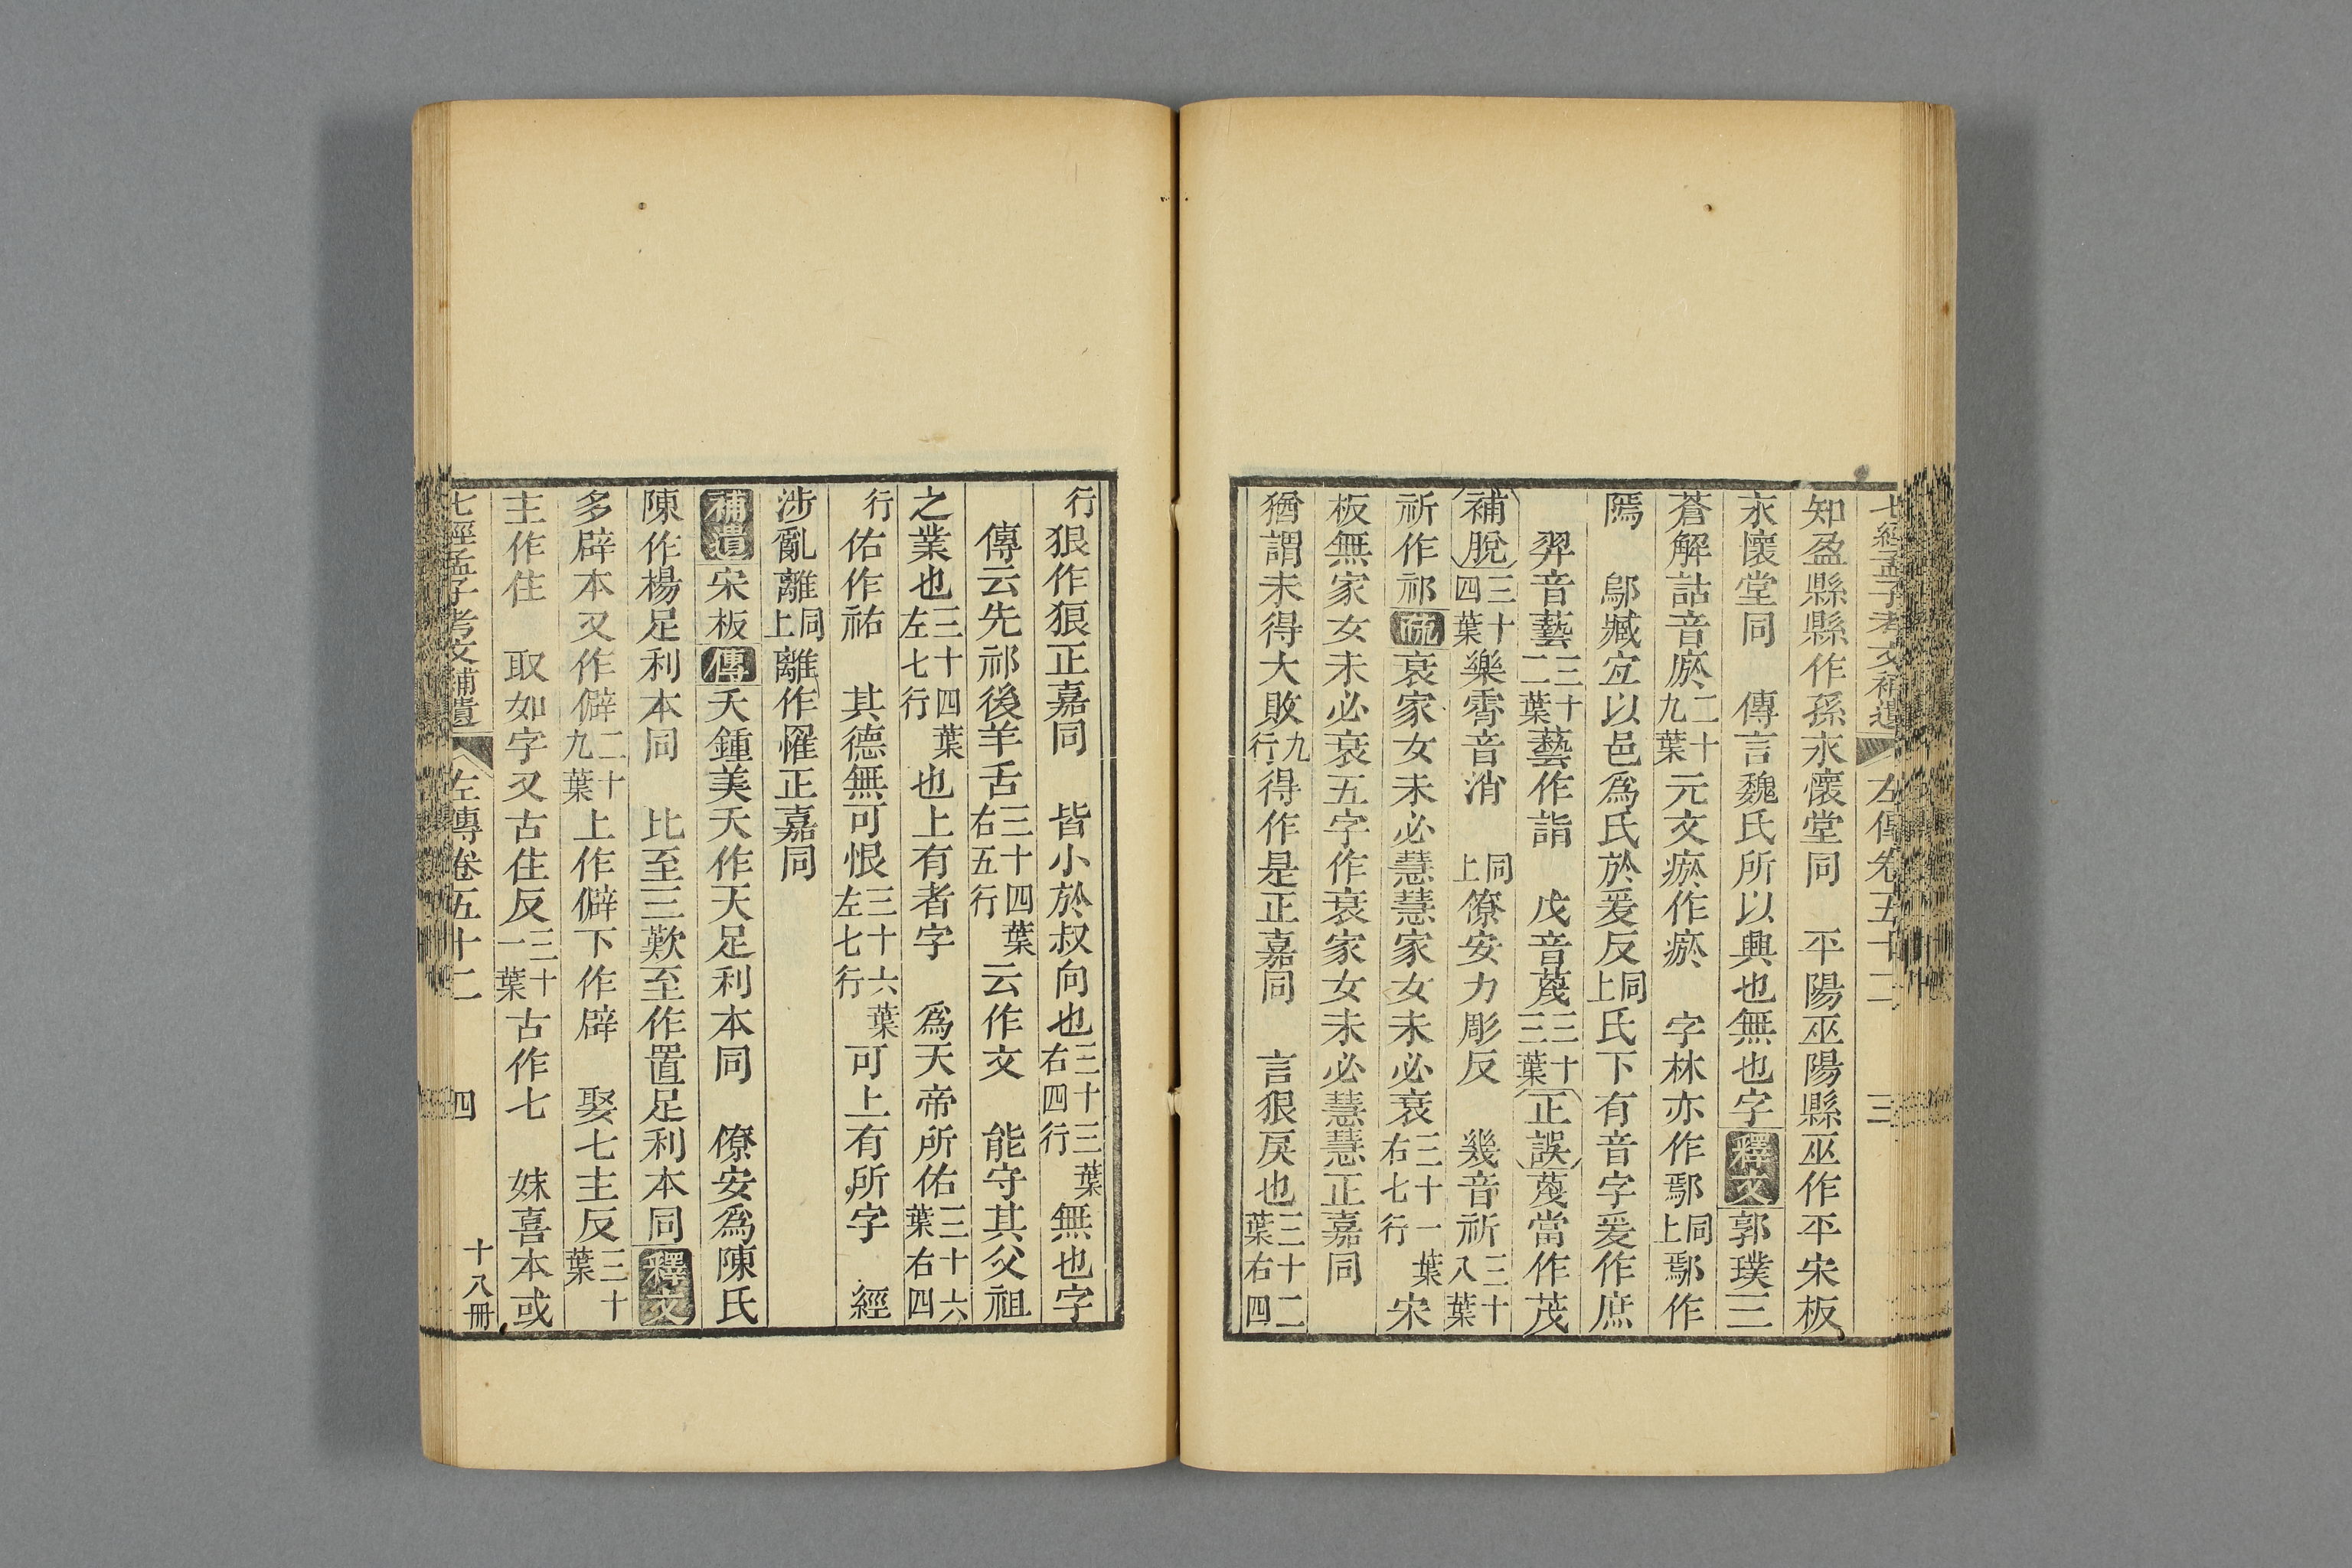 七經孟子考文補遺 左傳卷五十二 三
知盈縣縣作孫永懷堂同　平陽巫陽縣巫作平宋板
永懷堂同　傳言魏氏所以興也無也字釋文郭璞三
蒼解詁音瘀二十九葉元文瘀作瘀　字林亦作鄢同上鄢作
隖　鄔臧宐以邑爲氏於爰反同上氏下有音字爰作庶
羿音藝三十二葉藝作詣　戊音蔑三十三葉正誤蔑當作茂
補脫三十四葉樂霄音消　同上僚安力彫反　幾音祈三十八葉
祈作祁疏衰家女未必慧慧家女未必衰三十一葉右七行宋
板無家女未必衰五字作衰家女未必慧慧正嘉同
猶謂未得大敗九行得作是正嘉同　言狠戾也三十二葉右四
行狠作狼正嘉同　皆小於叔向也三十三葉右四行無也字
傳云先祁後羊舌三十四葉右五行云作文　能守其父祖
之業也三十四葉左七行也上有者字　爲天帝所佑三十六葉右四
行佑作祐　其德無可恨三十六葉左七行可上有所字　經
涉亂離同上離作罹正嘉同
補遺宋板傳夭鍾美夭作天足利本同　僚安爲陳氏
陳作楊足利本同　比至三歎至作置足利本同釋文
多辟本又作僻二十九葉上作僻下作辟　娶七主反三十葉
主作住　取如字又古住反三十一葉古作七　妹喜本或
七經孟子考文補遺 左傳卷五十二 四 十八冊